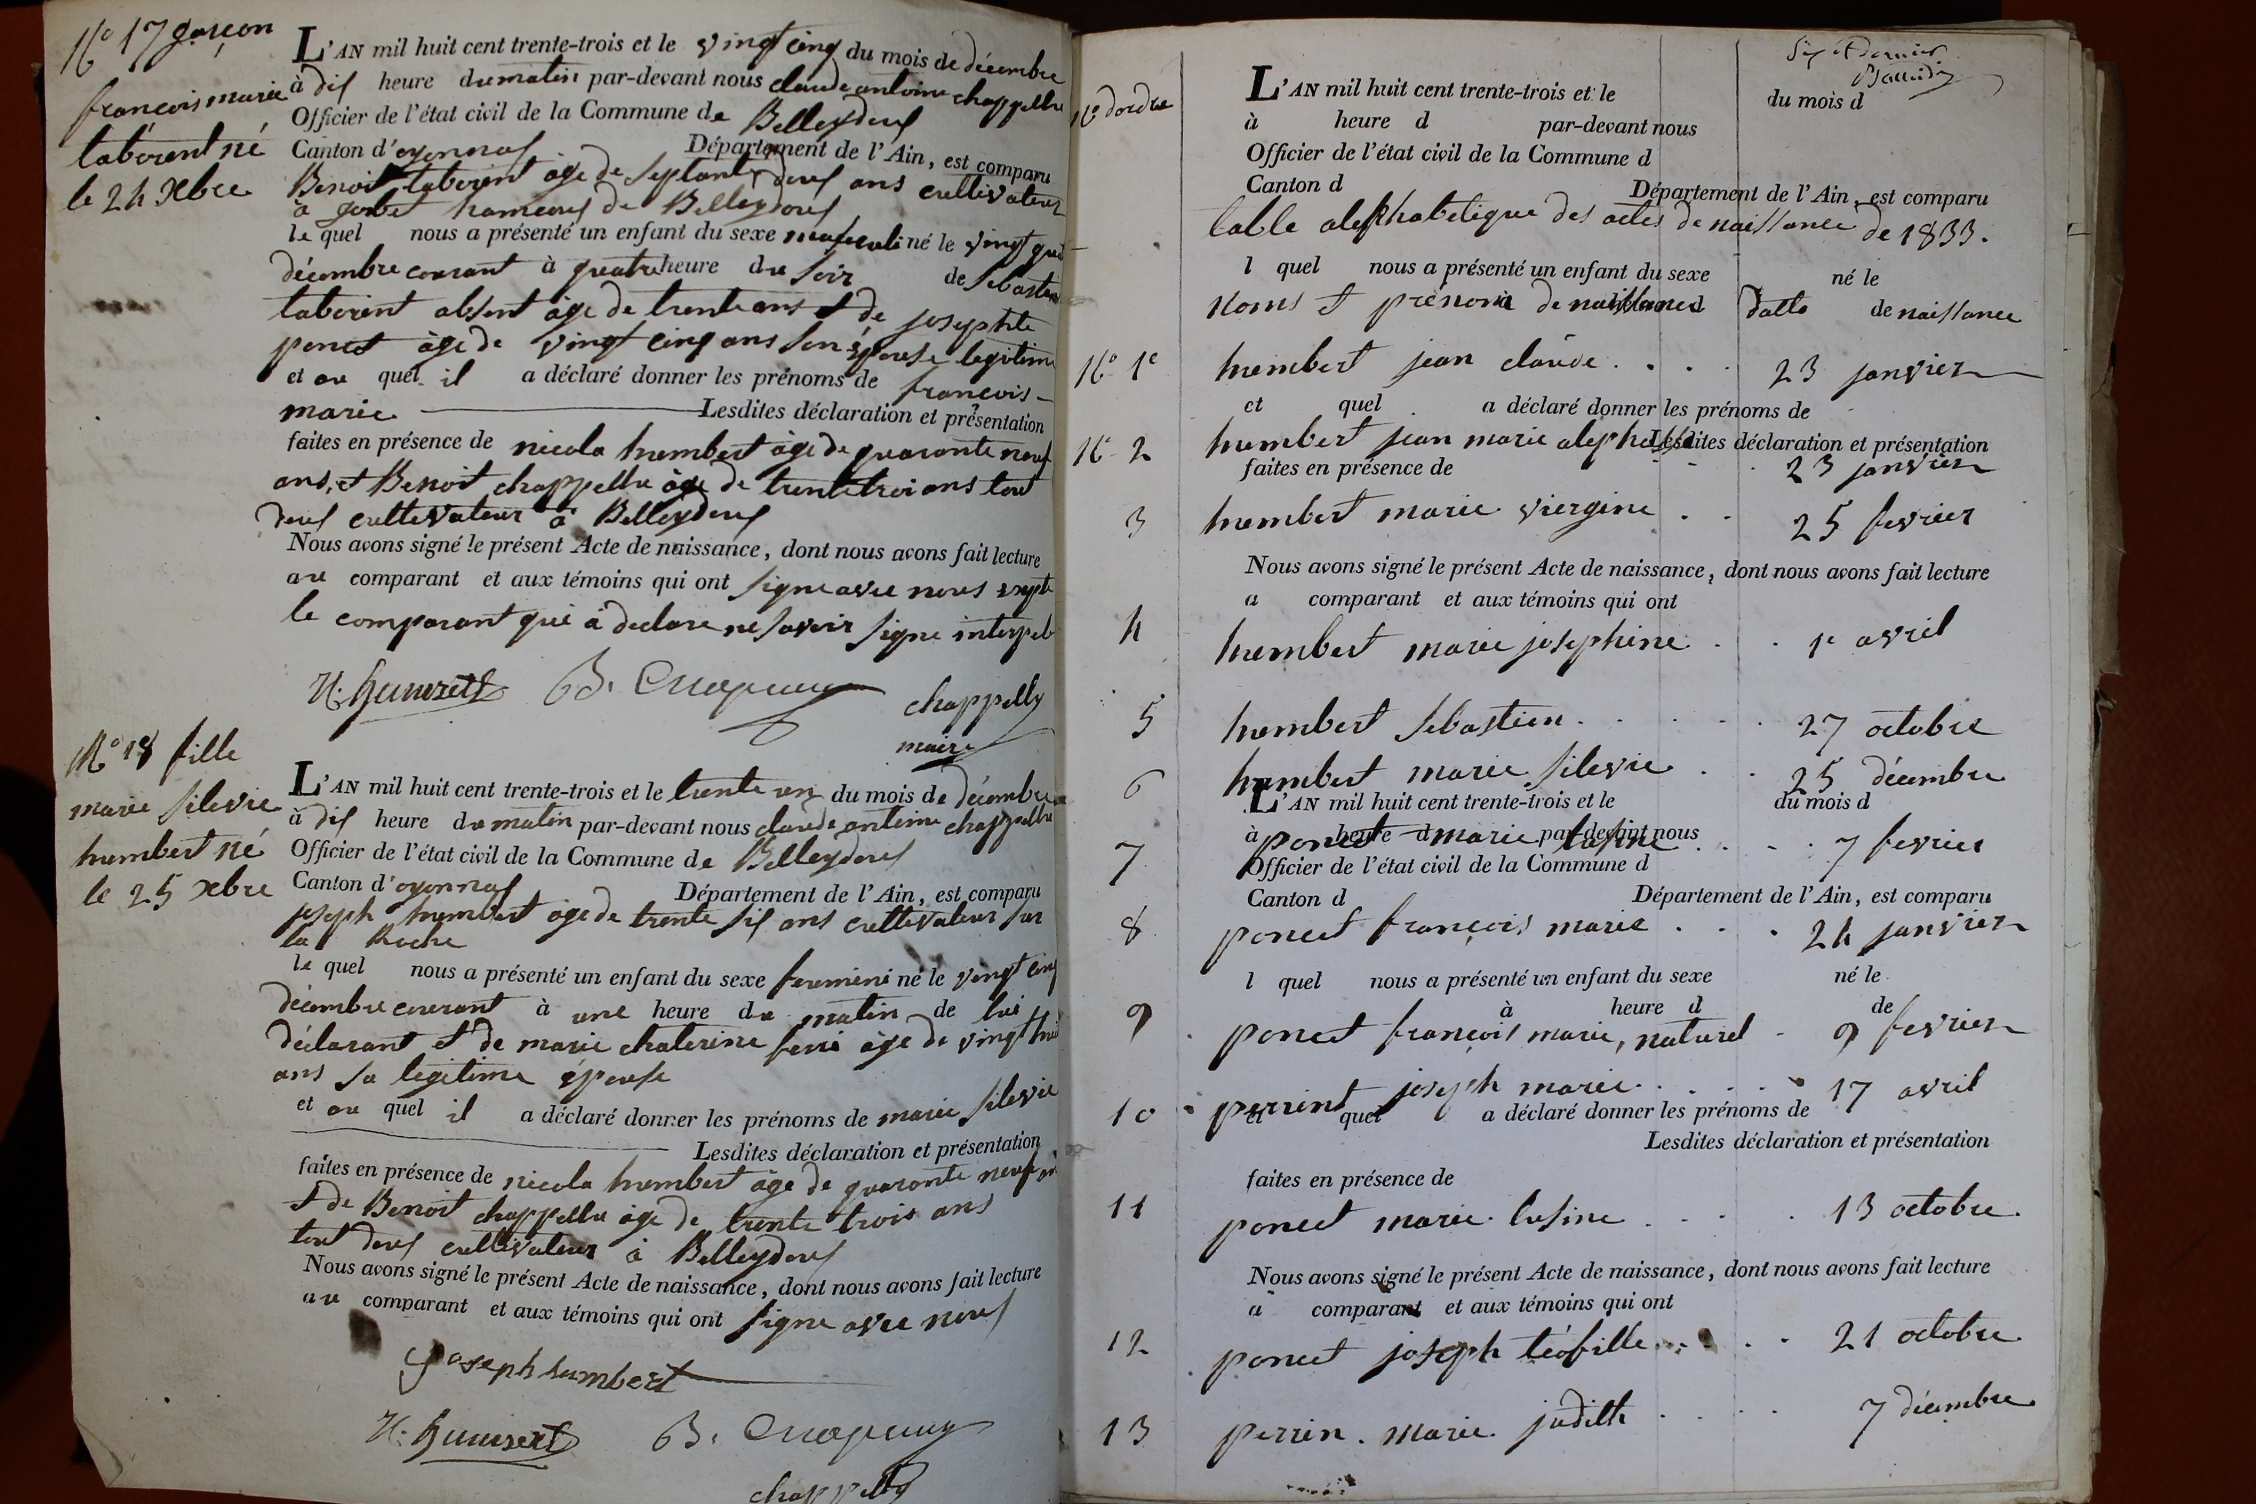 No 17 garçon
françois marie
taborent né
le 24 xbre
L'AN mil huit cent trente-trois et le vingt cinq du mois de décembre
à dis heure du matin par-devant nous claude antoine chappellu
Officier de l'état civil de la Commune de Belleydous
Canton d'oyonnas Département de l'Ain, est comparu
Benoit taborent age de septante deus ans cultivateur
à gobet hameaus de Belleydous
le quel nous a présenté un enfant du sexe masculi né le vingt
décembre courant à quatre heure du soir de sebastien
taborent absent âge de trente ans et de josephte
poncet âge de vingt cinq ans son épouse legitime
et au quel il a déclaré donner les prénoms de françois
marie Lesdites déclaration et présentation
faites en présence de nicola humbert âge de quarante neuf
ans, et Benoit chappellu âge de trente troi ans tout
deus cultivateur à Belleydous
Nous avons signé le présent Acte de naissance, dont nous avons fait lecture
au comparant et aux témoins qui ont signe avec nous
le comparant qui à declare ne savoir signe
N. humbert B. chappellu
maire
No 18 fille
marie silevie
humbert né
le 25 xbre
L'AN mil huit cent trente-trois et le trente un du mois de décembre
à dis heure du matin par-devant nous claude antoine chappellu
Officier de l'état civil de la Commune de Belleydous
Canton d'oyonnas Département de l'Ain, est comparu
joseph humbert âge de trente sis ans cultivateur sur
la Roche
le quel nous a présenté un enfant du sexe feminin né le vingt cinq
décembre courant à une heure du matin de lui
déclarant et de marie chaterine âge de vingt
ans sa legitime épouse
et au quel il a déclaré donner les prénoms de marie silevie
Lesdites déclaration et présentation
faites en présence de nicola humbert âge de quarante neuf
et de Benoit chappellu âge de trente trois ans
tout deus cultivateur à Belleydous
Nous avons signé le présent Acte de naissance, dont nous avons fait lecture
au comparant et aux témoins qui ont signe avec nous
joseph humbert
N. humbert B.
No dordre
L'AN mil huit cent trente-trois et le du mois d
à heure d par-devant nous
Officier de l'état civil de la Commune d
Canton d Département de l'Ain, est comparu
table alephabetique des actes de naissance de 1833.
l quel nous a présenté un enfant du sexe né le
noms et prenoms de naissance datte de naissance
No 1e humbert jean claude 23 janvier
et quel a déclaré donner les prénoms de
No 2 humbert jean marie
Lesdites déclaration et présentation
faites en présence de 23 janvier
3 humbert marie viergine 25 fevrier
Nous avons signé le présent Acte de naissance, dont nous avons fait lecture
a comparant et aux témoins qui ont
4 humbert marie josephine 1e avril
5 humbert sebastien 27 octobre
6 humbert marie silevie 25 décembre
L'AN mil huit cent trente-trois et le du mois d
à heure d par-devant nous
7 poncet marie lusine 7 fevrier
Officier de l'état civil de la Commune d
Canton d Département de l'Ain, est comparu
8 poncet françois marie 24 janvier
l quel nous a présenté un enfant du sexe né le
à heure d de
9 poncet françois marie, naturel 9 fevrier
10 perrint joseph marie 17 avril
et quel a déclaré donner les prénoms de
Lesdites déclaration et présentation
faites en présence de
11 poncet marie lusine 13 octobre
Nous avons signé le présent Acte de naissance, dont nous avons fait lecture
a comparant et aux témoins qui ont
12 poncet joseph téofille 21 octobre
13 perrin marie judith 7 décembre